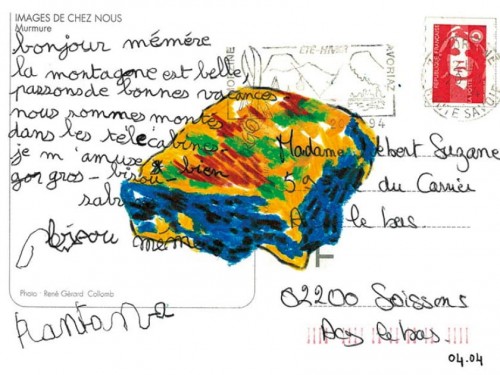 IMAGES DE CHEZ NOUS
Murmure
bonjour mémére
la montagne est belle
passons de bonnes vacances
nous sommes montés
dans les télécabine
je m'amuse bien
gor gros - bisou
sabr
bisou mémé
Photo : René Gérard Collomb
MORZINE
ÉTÉ-HIVER
AVORIAZ
94
TE SAVOIE
RÉPUBLIQUE FRANÇAISE
LA POSTE
Madame bert Suzane
5 a e du Carrier
A le bas.
02200 Soissons
Acy le bas.
04.04